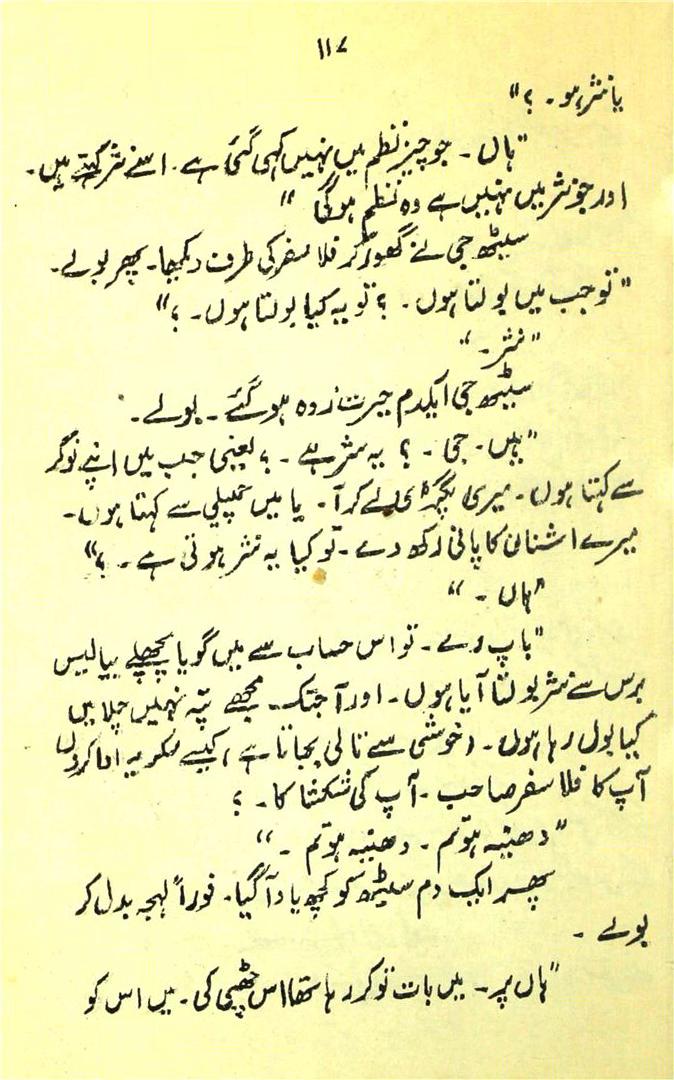 ۱۱۷
یا نثر ہو۔ ؟"
"ہاں۔ جو چیز نظم میں نہیں کہی گئی ہے۔ اسے نثر کہتے ہیں۔
اور جو نثر میں نہیں ہے وہ نظم ہو گی"
سیٹھ جی نے گھور کر فلاسفر کی طرف دیکھا۔ پھر بولے۔
"تو جب میں بولتا ہوں۔ ؟ تو یہ کیا بولتا ہوں۔ ؟"
"نثر۔"
سیٹھ جی ایکدم حیرت زدہ ہو گئے۔ بولے۔
"ہیں۔ جی۔ ؟ یہ نثر ہے۔ ؟ یعنی جب میں اپنے نوکر
سے کہتا ہوں۔ میری پگڑی لے کر آ۔ یا میں چمپلی سے کہتا ہوں۔
میرے اشنان کا پانی رکھ دے۔ تو کیا یہ نثر ہوتی ہے۔ ؟"
"ہاں۔"
"باپ رے۔ تو اس حساب سے میں گویا پچھلے بیالیس
برس سے نثر بولتا آیا ہوں۔ اور آجتک۔ مجھے پتہ نہیں چلا میں
کیا بول رہا ہوں۔ (خوشی سے تالی بجاتا ہے) کیسے شکریہ ادا کروں
آپ کا فلاسفر صاحب۔ آپ کی شکشا کا۔ ؟
"دھنیہ ہو تم۔ دھنیہ ہو تم۔"
پھر ایک دم سیٹھ کو کچھ یاد آ گیا۔ فوراً لہجہ بدل کر
بولے۔
"ہاں پر۔ میں بات تو کر رہا تھا اس چٹھی کی۔ میں اس کو